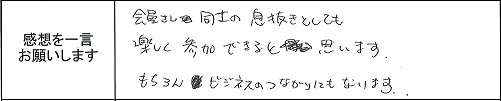 感想を一言
お願いします
会員さん同士の息抜きとしても
楽しく参加できると思います.
もちろんビジネスのつながりにもなります..